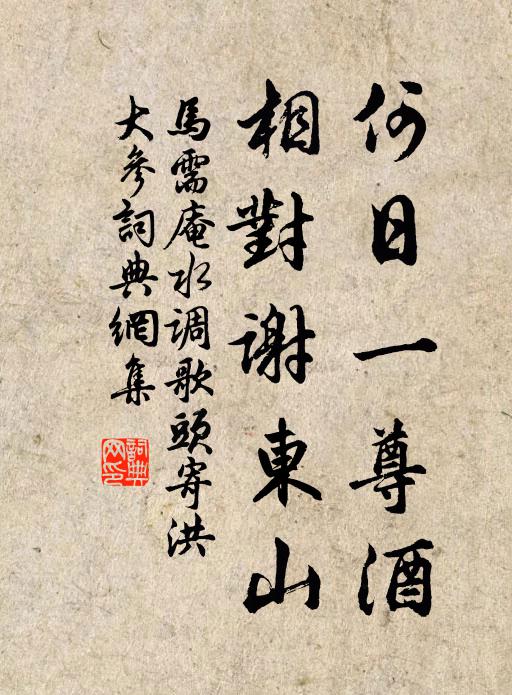 何日一尊酒
相對謝東山
馬需庵水调歌頭寄洪
大參詞典網集
詞典网印